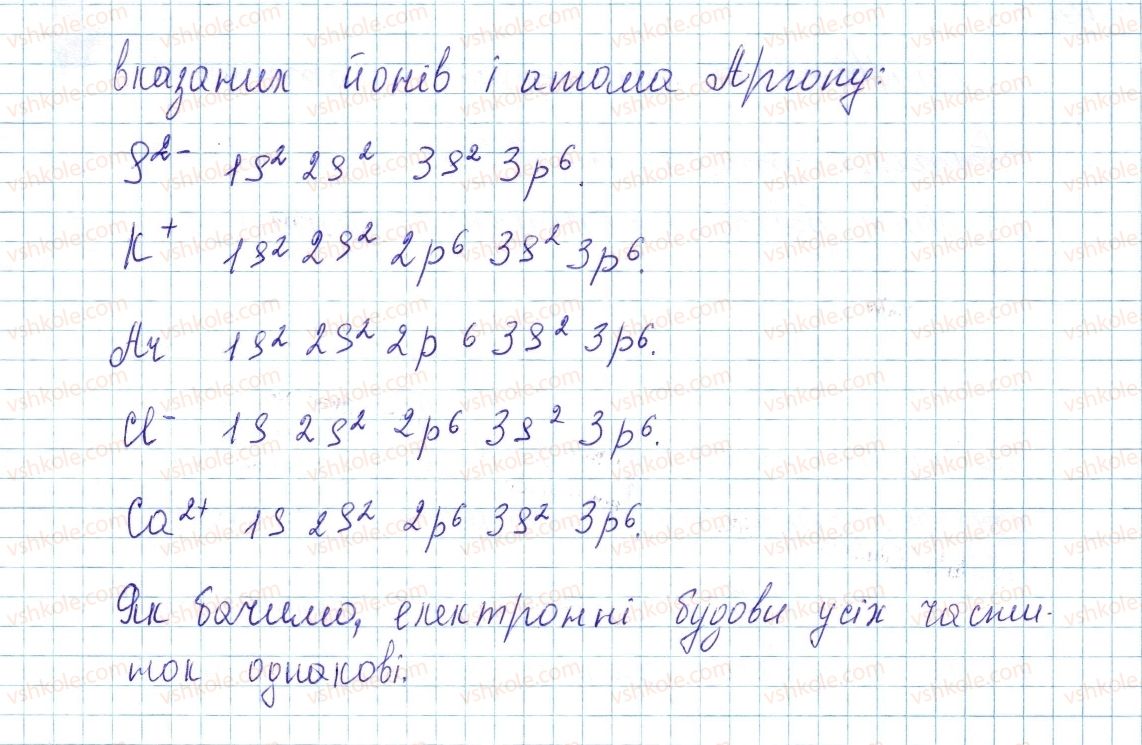 вказаних йонів і атома Аргону:
S²⁻ 1s² 2s² 3s² 3p⁶.
K⁺ 1s² 2s² 2p⁶ 3s² 3p⁶.
Ar 1s² 2s² 2p⁶ 3s² 3p⁶.
Cl⁻ 1s 2s² 2p⁶ 3s² 3p⁶.
Ca²⁺ 1s 2s² 2p⁶ 3s² 3p⁶.
Як бачимо, електронні будови усіх части-
ток однакові.